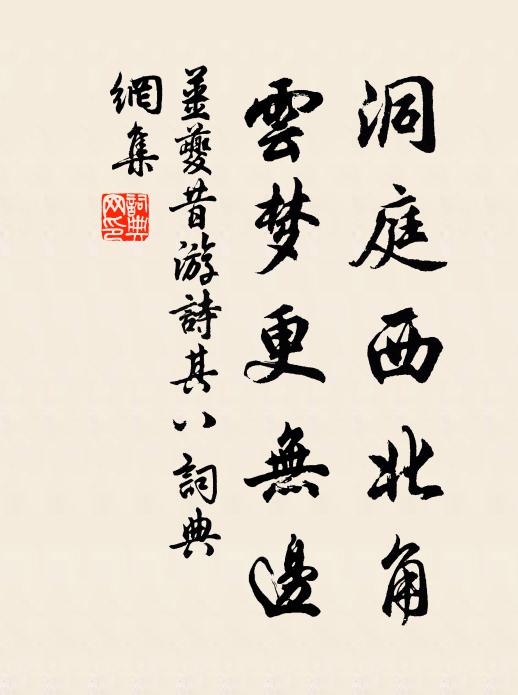 洞庭西北角
雲梦更無邊
姜夔昔游詩其八詞典
網集
詞典
网印